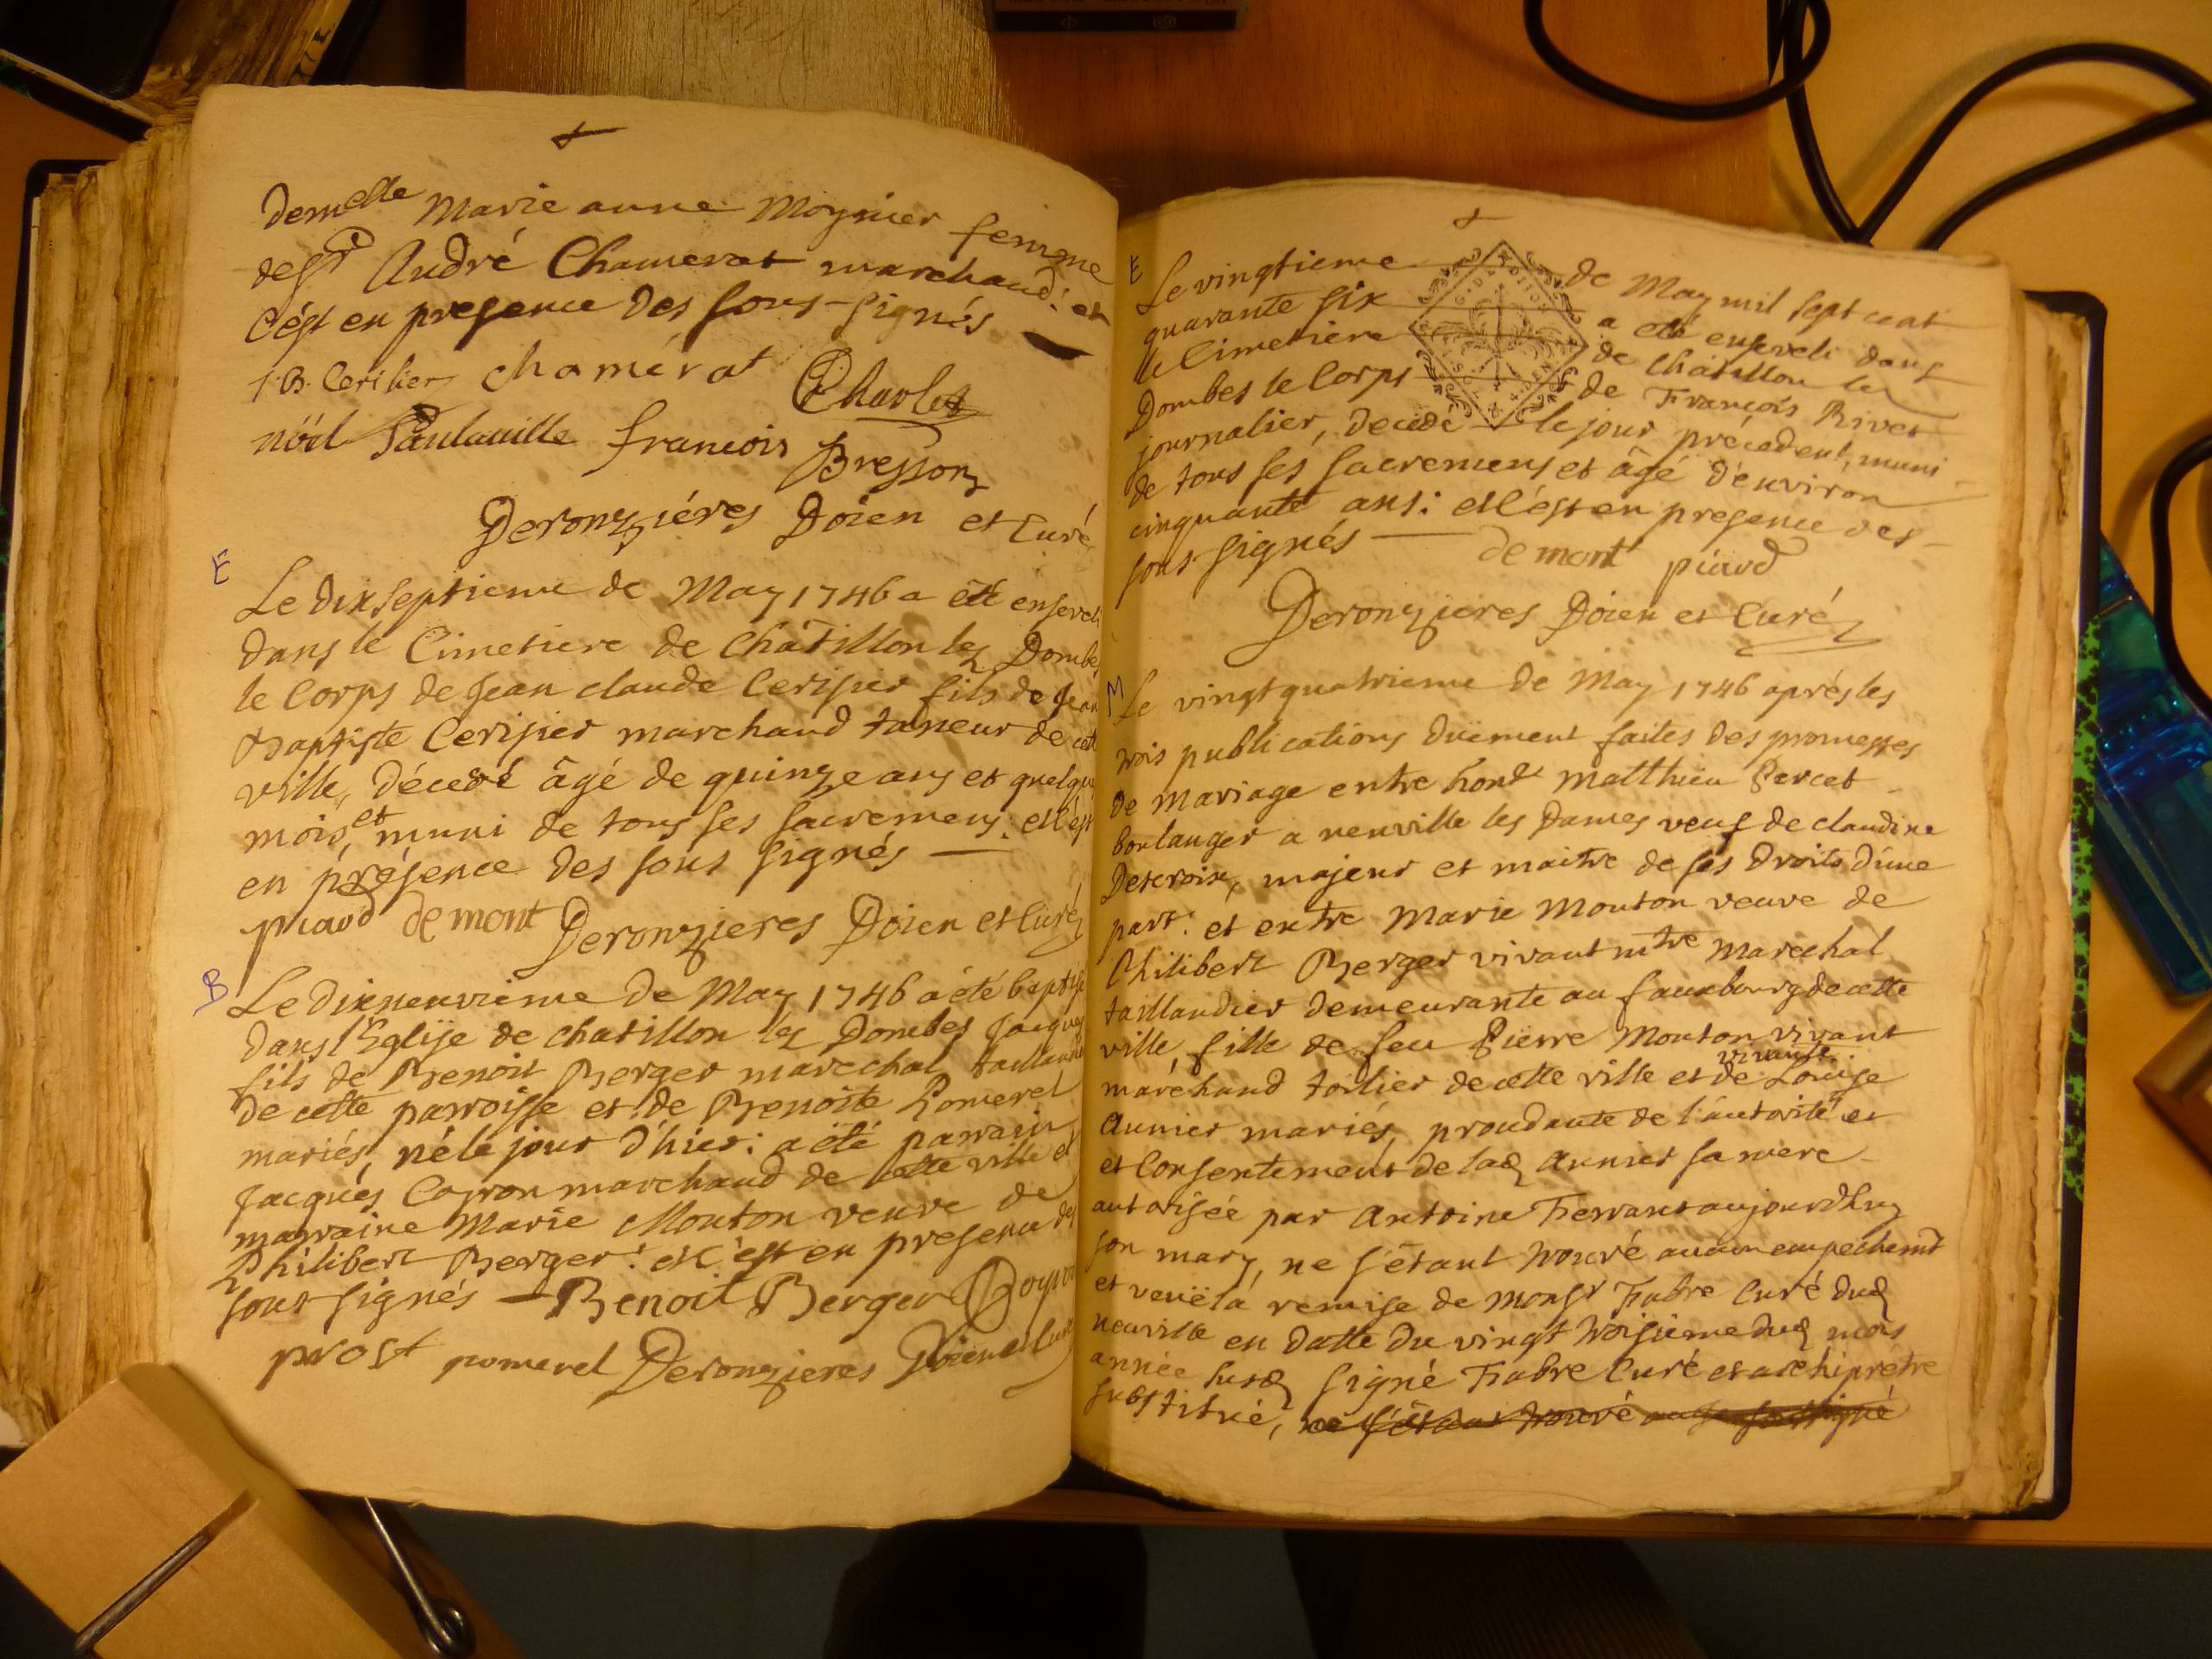 demelle Marie anne Moynier femme
de sr André Chamerat marchand: et
c'ést en presence des sous-signés
J.B. Cerisier chamérat Charles
nöel françois Bresson
Deronzières Doien et Curé
E
Le dixseptieme de May 1746 a été enseveli
dans le Cimetiere de Châtillon lez Dombes
le Corps de Jean claude Cerisier fils de Jean
Baptiste Cerisier marchand taneur de cette
ville, décedé âgé de quinze ans et quelque
mois, et muni de tous ses sacremens: et c'ést
en présence des sous signés
piard demont Deronzieres Doien et Curé
B
Le dixneuvieme de May 1746 a été baptisé
dans l'Eglise de chatillon lez Dombes Jacques
fils de Benoit Berger marechal taillandier
de cette parroisse et de Benoîte Pomerel
mariés, né le jour d'hier: a été parrain
Jacques Coyron marchand de cette ville et
marraine Marie Mouton veuve de
Philibert Berger: et c'est en presence des
sous signés Benoit Berger
prost pomerel Deronzieres Doien et Curé
E
Le vingtieme de May mil sept cent
quarante six a été enseveli dans
le Cimetiere de Châtillon lez
Dombes le Corps de François Rivet
journalier, décédé le jour précedent, muni
de tous ses sacremens et âgé d'environ
cinquante ans: et c'ést en presence des
sous-signés demont piard
Deronzieres Doien et Curé
M
Le vingtquatrieme de May 1746 aprés les
trois publications düement faites des promesses
de mariage entre hond Matthieu Percet
boulanger a neuville les Dames veuf de claudine
Descroix, majeur et maitre de ses droits d'une
part: et entre Marie Mouton veuve de
Philibert Berger vivant mtre Marechal
taillandier demeurante au fauxbourg de cette
ville, fille de feu Pierre Mouton vivant
marchand toilier de cette ville et de vivante Louise
Aunier mariés, procedante de l'autorité et
et Consentement de lad Aunier sa mere
autorisée par Antoine Ferrant aujourdhuy
son mary, ne s'étant trouvé aucun empechemt
et veüe la remise de Monsr Fabre Curé dud
neuville en datte du vingt troisieme dud mois
année susd signé Fabre Curé et archiprétre
substitué, ne s'étant trouvé